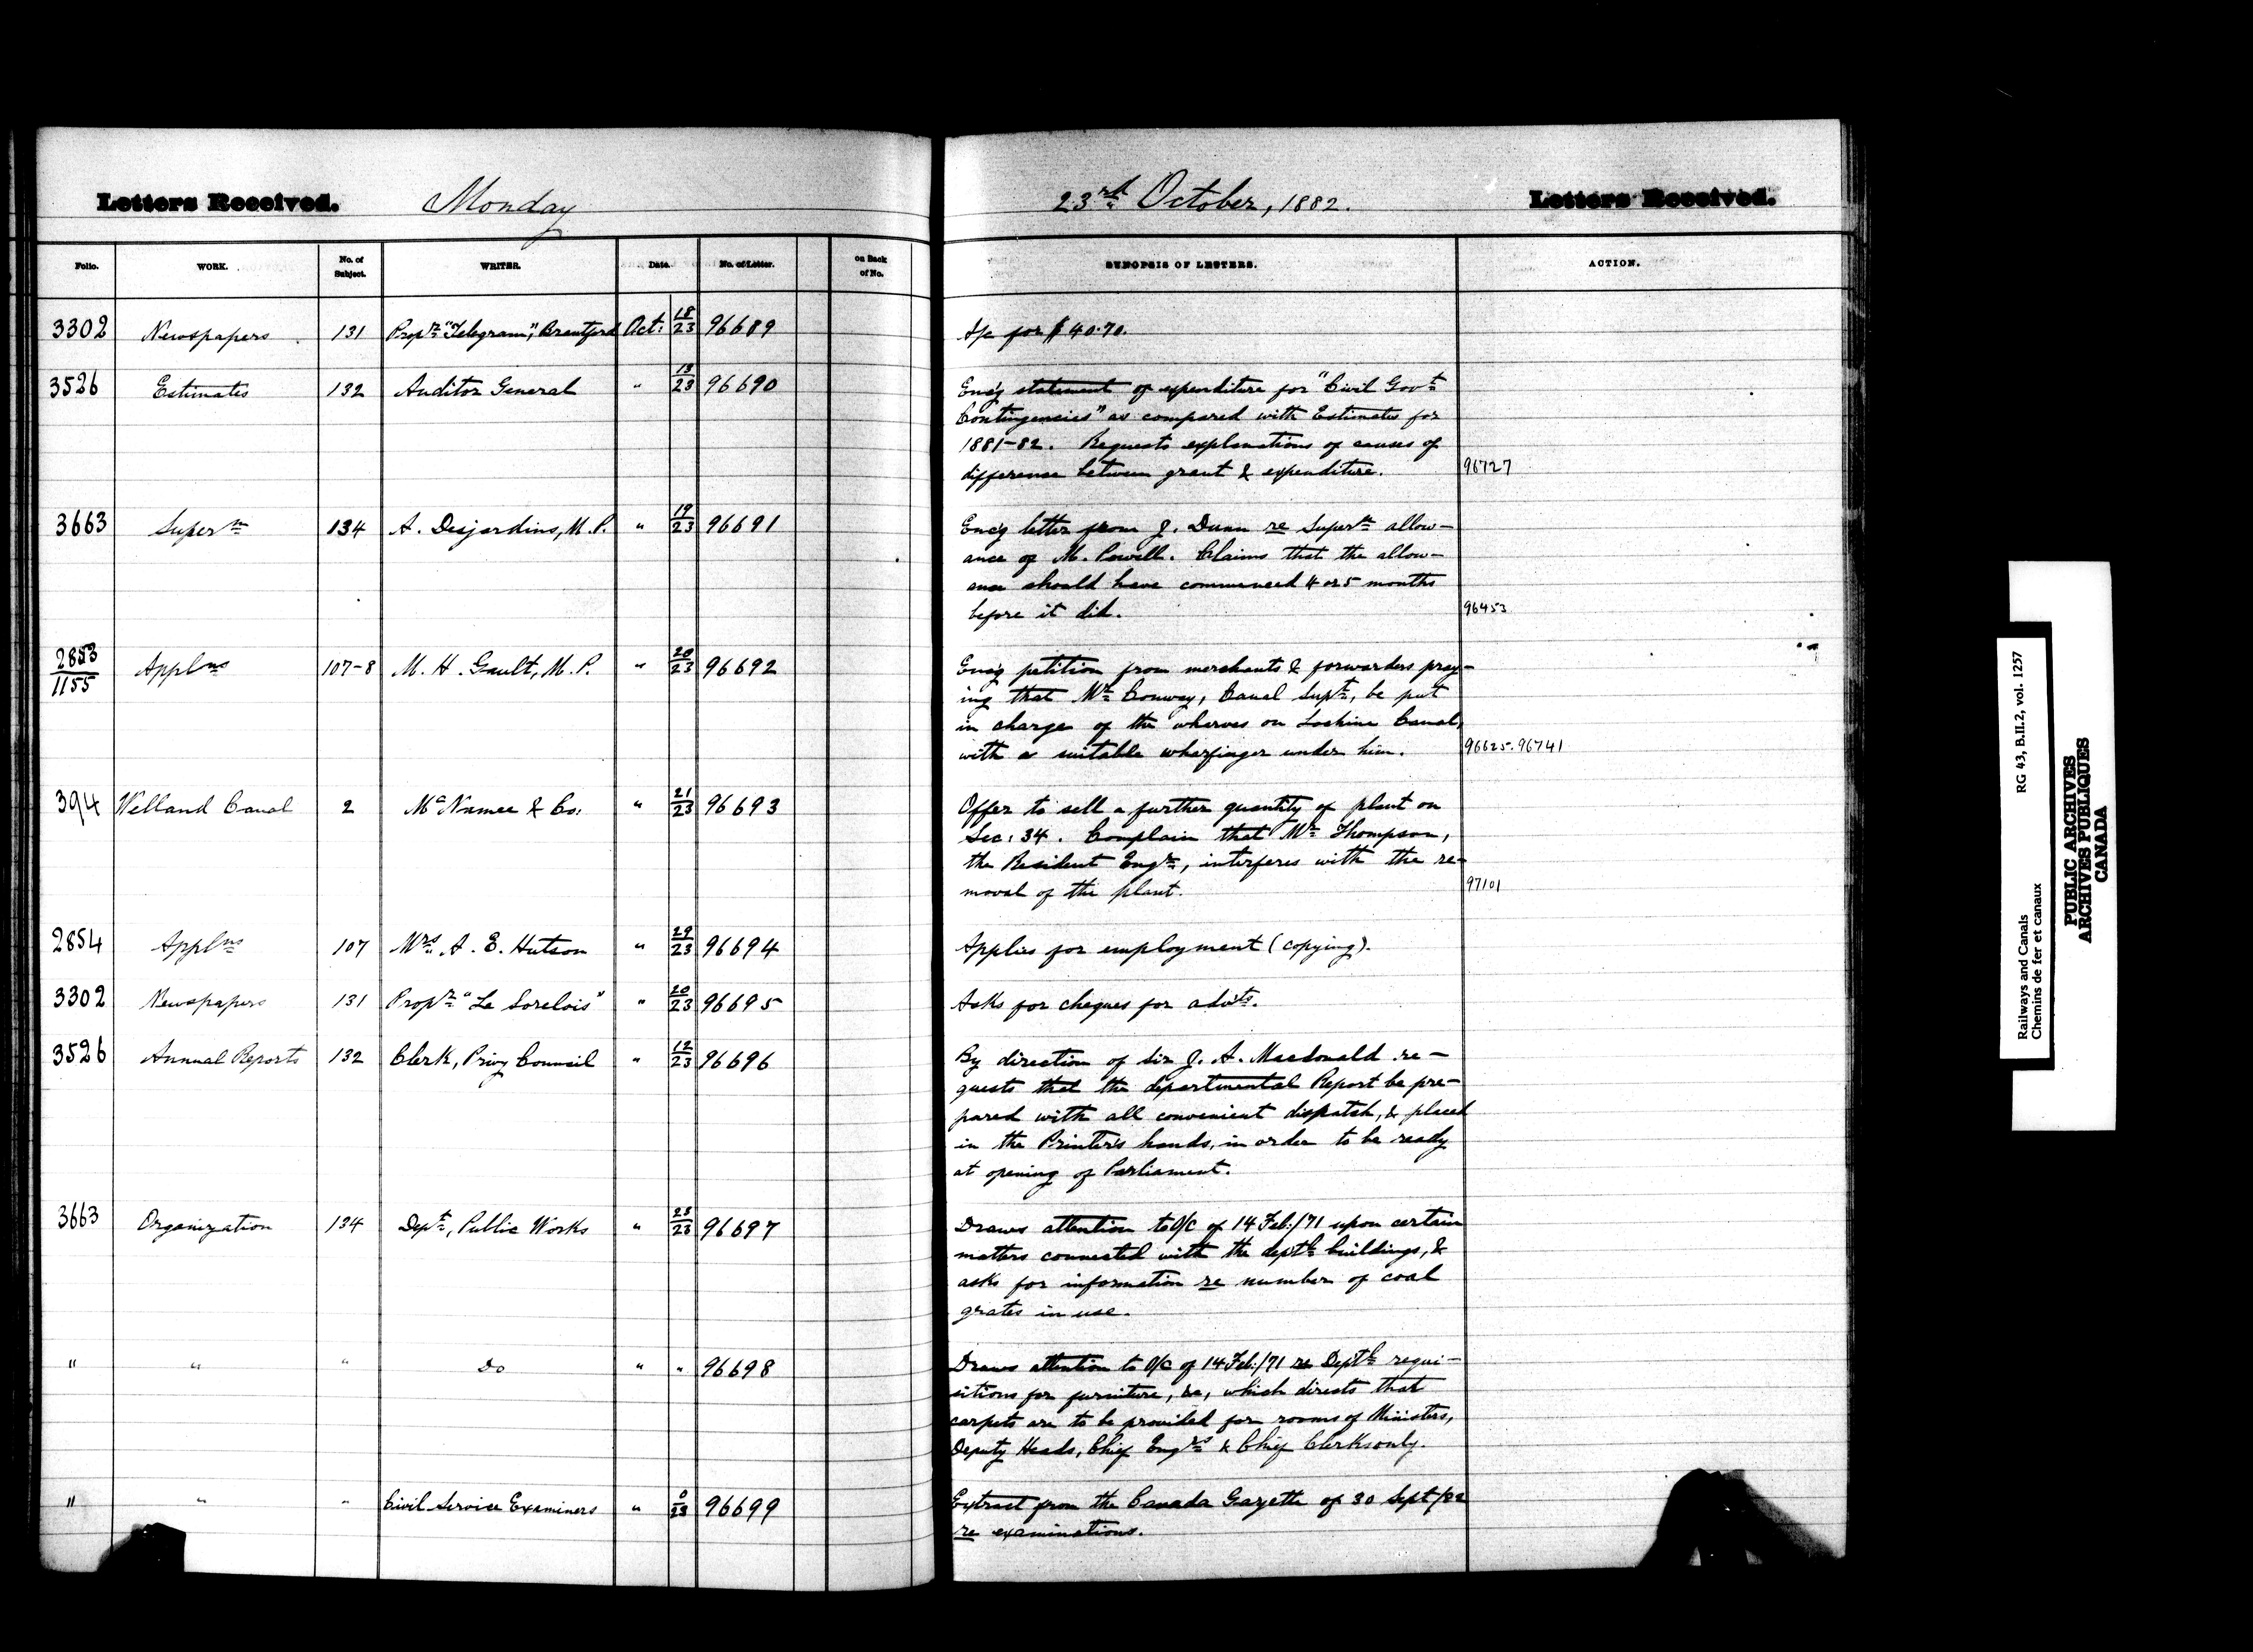 Letters Received. Monday 23rd October, 1882. Letters Received.
Folio. WORK. No. of Subject. WRITER. Date. No. of Letter. on Back of No. SYNOPSIS OF LETTERS. ACTION.
3302 Newspapers 131 Propr "Telegram", Brantford Oct: 18/23 96689 A/c for $40.70.
3526 Estimates 132 Auditor General " 13/23 96690 Enc'g statement of expenditure for "Civil Govt
Contingencies" as compared with Estimates for
1881-82. Requests explanations of causes of
difference between grant & expenditure. 96727
3663 Supern 134 A. Desjardins, M.P. " 19/23 96691 Enc'g letter from J. Dunn re Supern allow-
ance of M. Powell. Claims that the allow-
ance should have commenced 4 or 5 months
before it did. 96453
2853/1155 Applns 107-8 M. H. Gault, M.P. " 20/23 96692 Enc'g petition from merchants & forwarders pray-
ing that Mr Conway, Canal Supt, be put
in charge of the wharves on Lachine Canal,
with a suitable wharfinger under him. 96625. 96741
394 Welland Canal 2 McNamee & Co: " 21/23 96693 Offer to sell a further quantity of plant on
Sec: 34. Complain that Mr Thompson,
the Resident Engr, interferes with the re-
moval of the plant. 97101
2854 Applns 107 Mrs A. E. Hutson " 96694 Applies for employment (copying).
3302 Newspapers 131 Propr "Le Sorelois" " 20/23 96695 Asks for cheques for advts.
3526 Annual Reports 132 Clerk, Privy Council " 12/23 96696 By direction of Sir J. A. Macdonald re-
quests that the departmental Report be pre-
pared with all convenient dispatch, & placed
in the Printer's hands, in order to be ready
at opening of Parliament.
3663 Organization 134 Dept, Public Works " 23/23 96697 Draws attention to O/C of 14 Feb:/71 upon certain
matters connected with the deptl buildings, &
asks for information re number of coal
grates in use.
" " " Do " " 96698 Draws attention to O/C of 14 Feb:/71 re Deptl requi-
sitions for furniture, &c, which directs that
carpets are to be provided for rooms of Ministers,
Deputy Heads, Chief Engrs & Chief Clerks only.
" " " Civil Service Examiners " 0/23 96699 Extract from the Canada Gazette of 30 Sept/82
re examinations.
Railways and Canals RG 43, B.II.2, vol. 1257
Chemins de fer et canaux
PUBLIC ARCHIVES
ARCHIVES PUBLIQUES
CANADA